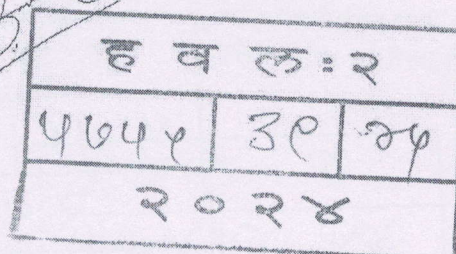 ह व ल : २
५७५५ ३९ २५
२०२४